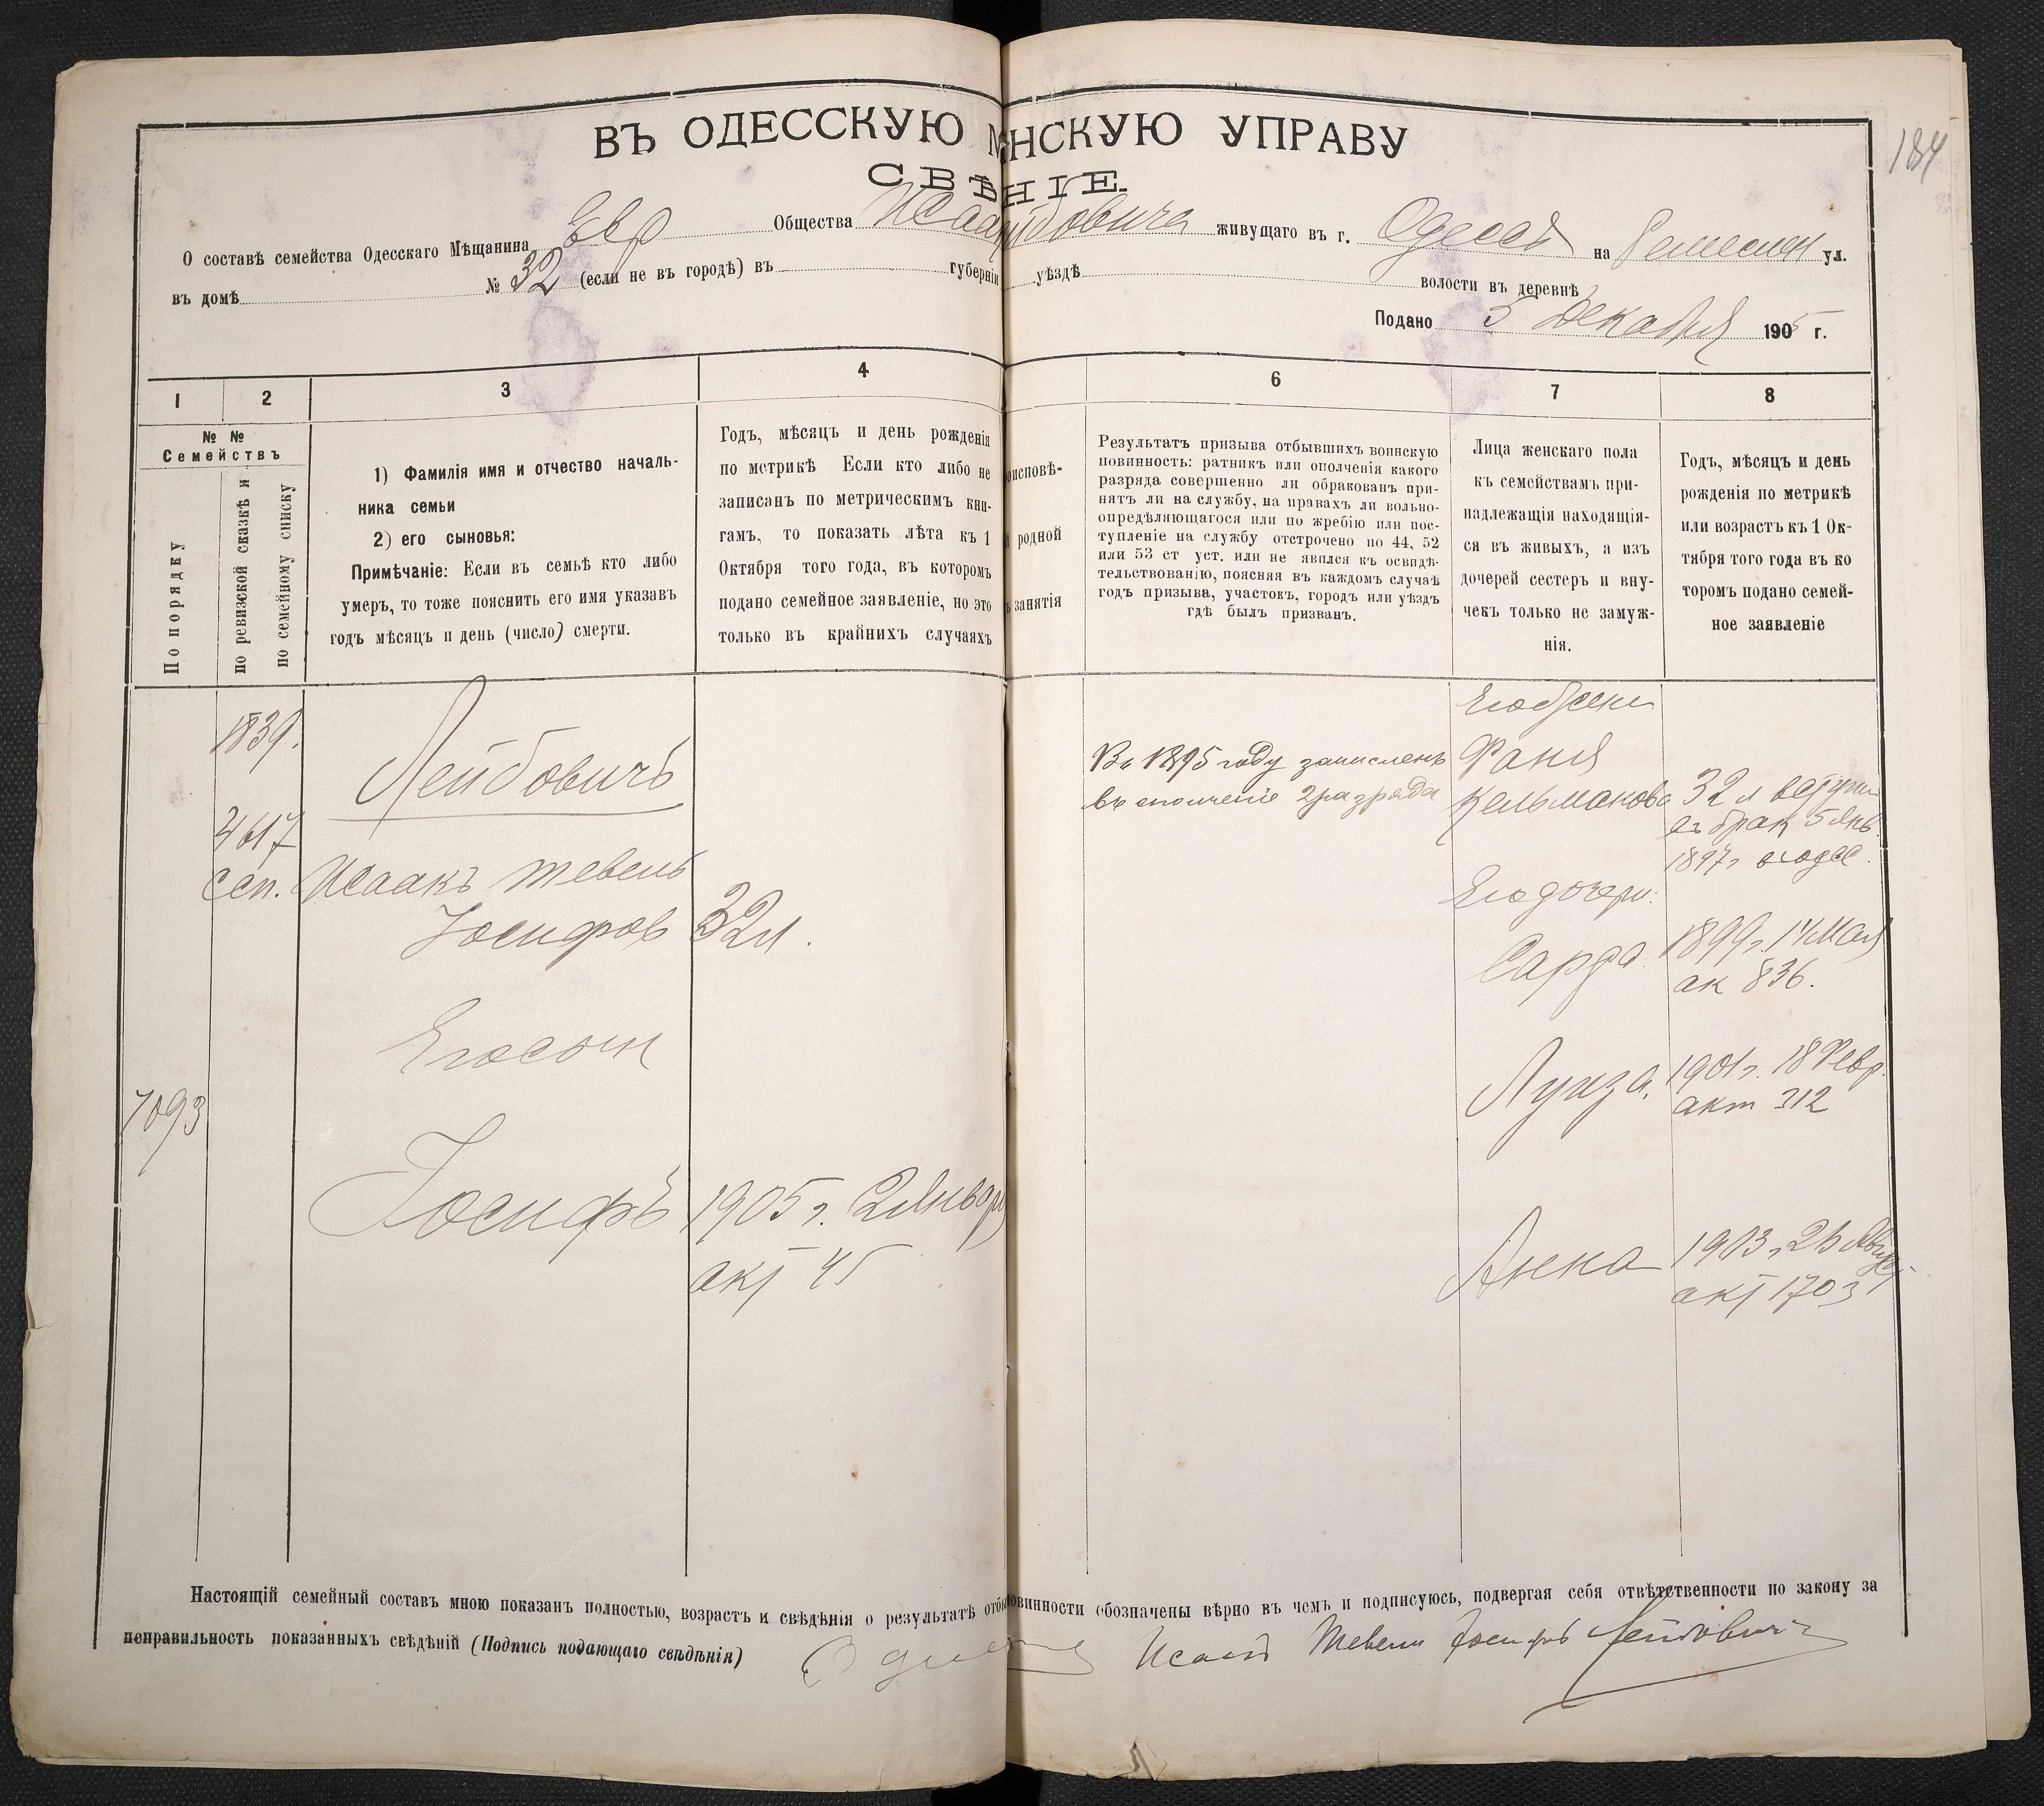 184
ВЪ ОДЕССКУЮ М НСКУЮ УПРАВУ
СВѢ НІЕ.
О составѣ семейства Одесскаго Мѣщанина Евр Общества Исаа йбовича живущаго въ г. Одессѣ на Ремеслен ул.
въ домѣ № 32 (если не въ городѣ) въ губерніи уѣздѣ волости въ деревнѣ
Подано 5 Декабря 1905 г.
1 2 3 4 6 7 8
№ №
Семействъ
По порядку
по ревизской сказкѣ и
по семейному списку
1) Фамилія имя и отчество началь-
ника семьи
2) его сыновья:
Примѣчаніе: Если въ семьѣ кто либо
умеръ, то тоже пояснить его имя указавъ
годъ мѣсяцъ и день (число) смерти.
Годъ, мѣсяцъ и день рожденія
по метрикѣ Если кто либо не
записанъ по метрическимъ кни-
гамъ, то показать лѣта къ 1
Октября того года, въ которомъ
подано семейное заявленіе, но это
только въ крайнихъ случаяхъ
оисповѣ-
родной
занятія
Результатъ призыва отбывшихъ воинскую
повинность: ратникъ или ополченія какого
разряда совершенно ли обракованъ при-
нятъ ли на службу, на правахъ ли вольно-
опредѣляющагося или по жребію или пос-
тупленіе на службу отстрочено по 44, 52
или 53 ст уст. или не явился къ освидѣ-
тельствованію, поясняя въ каждомъ случаѣ
годъ призыва, участокъ, городъ или уѣздъ
гдѣ былъ призванъ.
Лица женскаго пола
къ семействамъ при-
надлежащія находящія-
ся въ живыхъ, а изъ
дочерей сестеръ и вну-
чекъ только не замуж-
нія.
Годъ, мѣсяцъ и день
рожденія по метрикѣ
или возрастъ къ 1 Ок-
тября того года въ ко
торомъ подано семей-
ное заявленіе
1839.
4617
сем.
7093
Лейбовичъ
Исаакъ Тевель
Іосифов 32 л.
Его сын
Іосифъ 1905 г. 2 Января
акт 45
Въ 1895 году зачисленъ
въ ополченіе 2 разряда
Его жена
Фаня
Кельманова 32 л вступи
въ брак 5 Янв.
1897 г. в Одес.
Его дочери:
Сарра 1899 г. 14 Мая
ак 836.
Луиза. 1901 г. 18 Февр.
акт 312
Анна 1903 г. 25 Август
акт 1703
Настоящій семейный составъ мною показанъ полностью, возрастъ и свѣдѣнія о результатѣ отбы овинности обозначены вѣрно въ чемъ и подписуюсь, подвергая себя отвѣтственности по закону за
неправильность показанныхъ свѣдѣній (Подпись подающаго свѣдѣнія) Исаакъ Тевель Іосифовъ Лейбовичъ